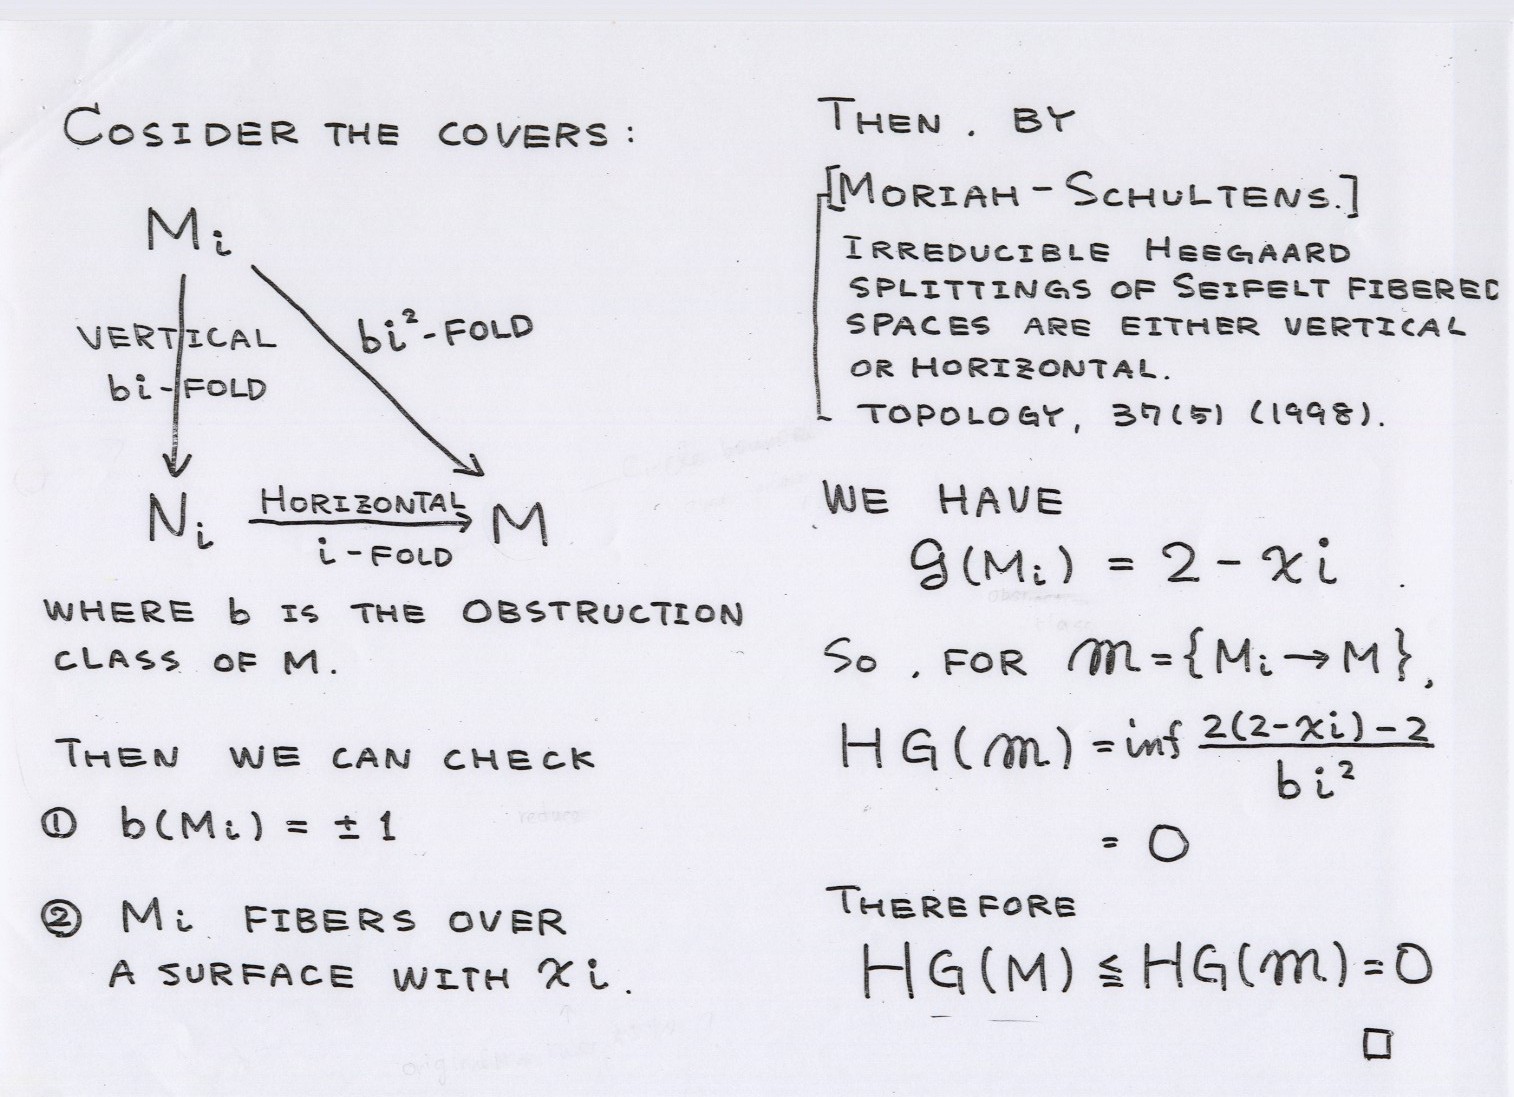 COSIDER THE COVERS :
Mi
VERTICAL
bi-FOLD
bi²-FOLD
Ni
HORIZONTAL
i-FOLD
M
WHERE b IS THE OBSTRUCTION
CLASS OF M.
THEN WE CAN CHECK
① b(Mi) = ±1
② Mi FIBERS OVER
A SURFACE WITH χi.
THEN. BY
[MORIAH-SCHULTENS.]
IRREDUCIBLE HEEGAARD
SPLITTINGS OF SEIFELT FIBERED
SPACES ARE EITHER VERTICAL
OR HORIZONTAL.
TOPOLOGY, 37(5) (1998).
WE HAVE
g(Mi) = 2-χi
SO, FOR 𝓜={Mi→M},
HG(𝓜) = inf 2(2-χi)-2
bi²
= 0
THEREFORE
HG(M) ≦ HG(𝓜)=0
□